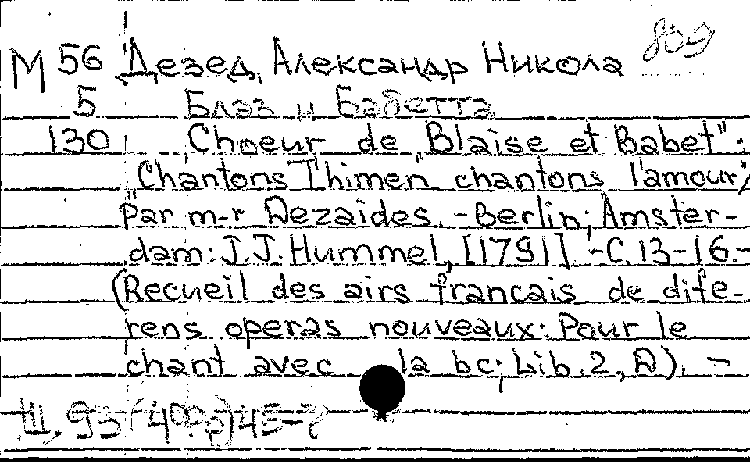 М 56 Дезед, Александр Никола 809
5 Блаз и Бабетта
130 Choeur de "Blaise et Babet":
"Chantons l'himen chantons l'amour",
Par m-r Dezaides. - Berlin; Amster-
dam: J.J. Hummel, [1791]. - С. 13-16. -
(Recueil des airs francais de dife-
rens operas nouveaux: Pour le
chant avec la bc; Lib. 2, A). -